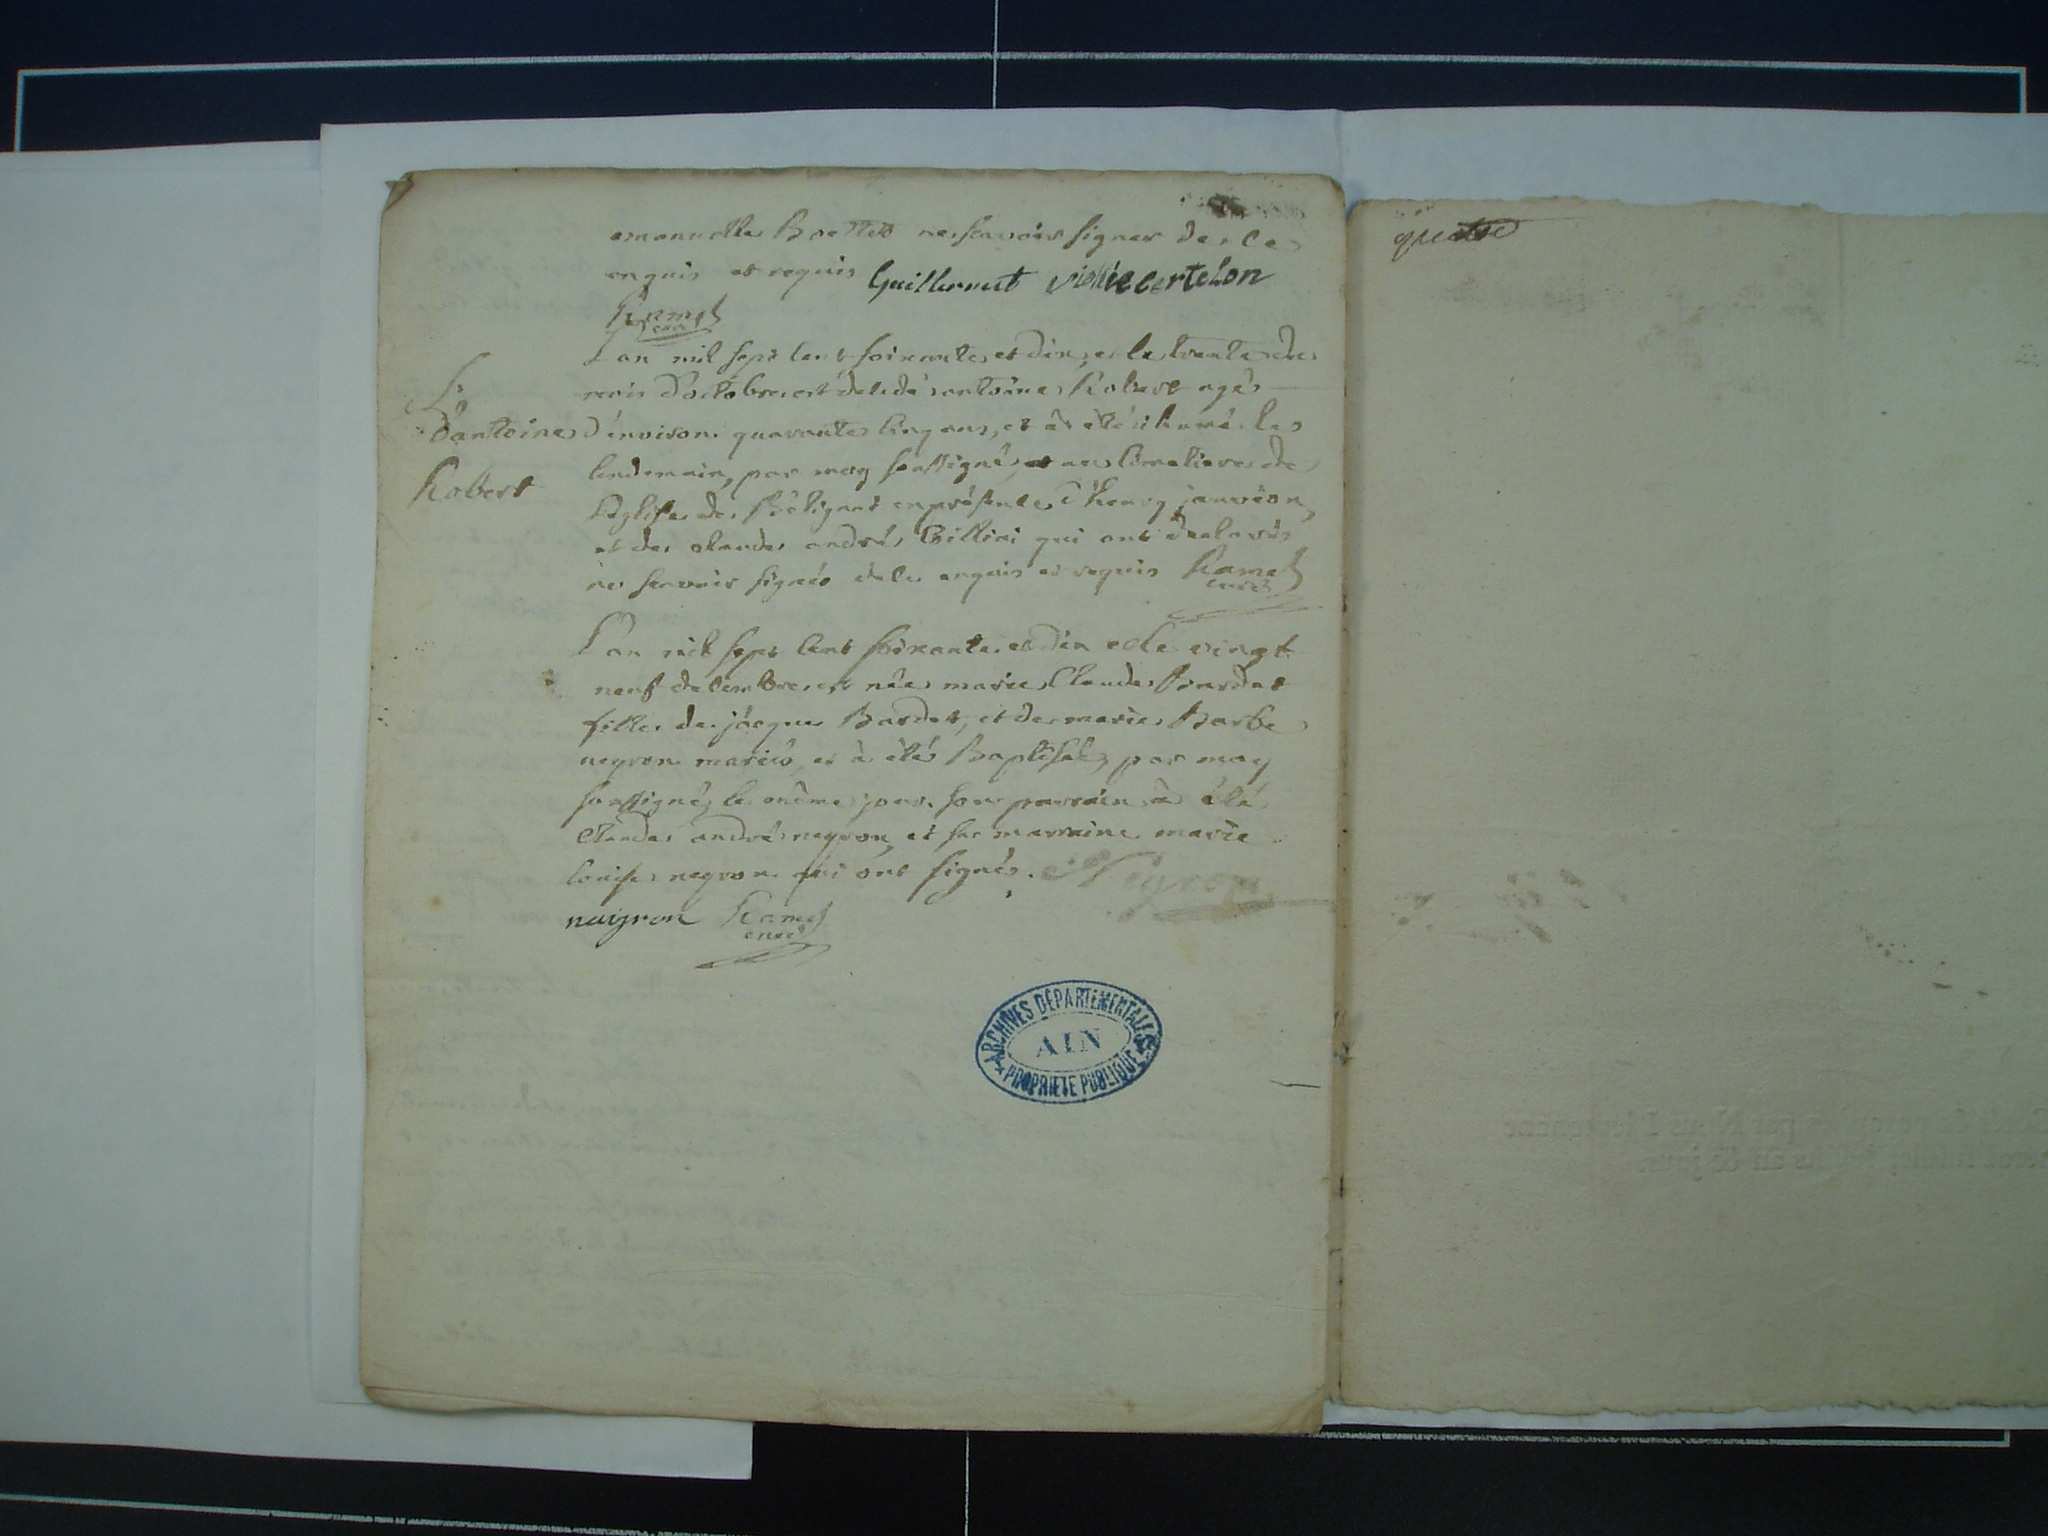 emanuelle Boettet ne scavoir signer de ce
enquis et requis Guillermet viallie certelon
Ramel
curé
L'an mil sept cent soixante et dix, et le trente de
mois d'octobre est décédé antoine Robert agé
S.
d'antoine
Robert
d'environ quarante cinq ans, et à été inhumé le
lendemain, par moy soussigné, au cimetiere de
l'Eglise de Béligneux en présence d'henry janvion,
et de claude andré Billiai qui ont declarés
ne scavoir signés de ce enquis et requis Ramel
curé
L'an mil sept cent soixante et dix et le vingt
neuf decembre est née marie Claude Bardet
fille de jacque Bardet, et de marie Barbe
negron mariés, et à été Baptisée, par moy
soussigné, le même jour. son parrain à été
Claude andré negron, et sa marraine marie
louise negron qui ont signés. Neyron
neigron Ramel
curé
ARCHIVES DEPARTEMENTALES
AIN
PROPRIETE PUBLIQUE